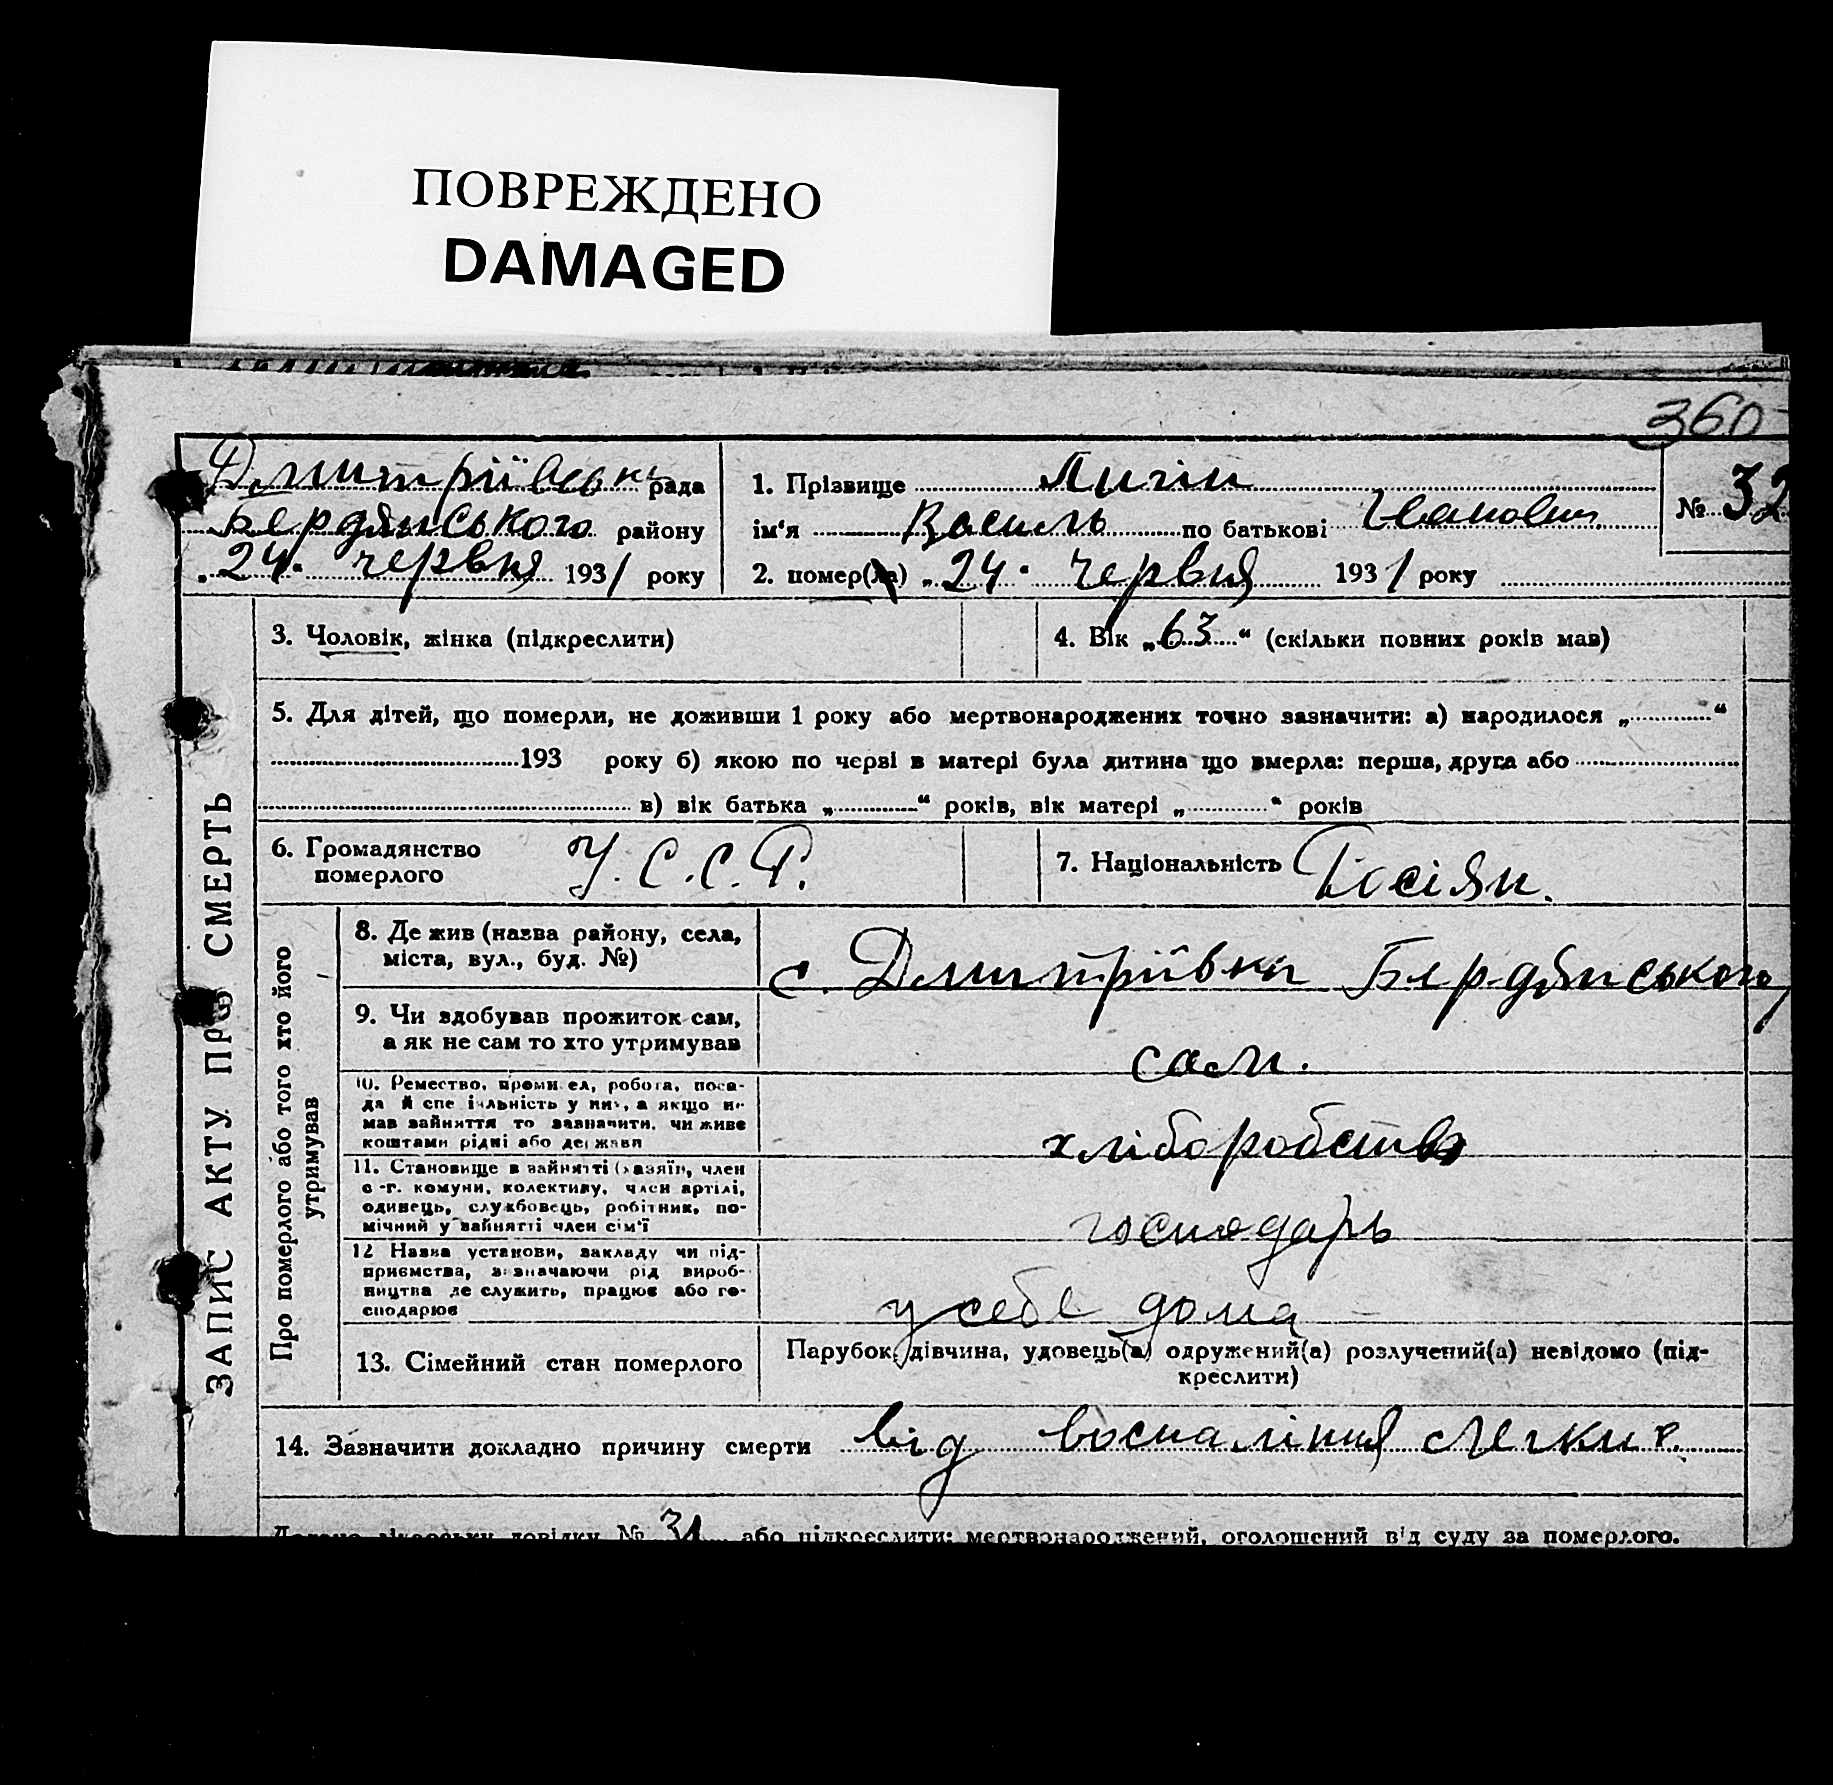 ПОВРЕЖДЕНО
DAMAGED
360
Дмитріївськ рада
Бердянського району
„24" червня 1931 року
1. Прізвище Лигін
ім'я Василь по батькові Іванович
№ 32
2. помер(ла) „24" червня 1931 року
ЗАПИС АКТУ ПРО СМЕРТЬ
3. Чоловік, жінка (підкреслити)
4. Вік „63" (скільки повних років мав)
5. Для дітей, що померли, не доживши 1 року або мертвонароджених точно зазначити: а) народилося „ "
193 року б) якою по черзі в матері була дитина що вмерла: перша, друга або
в) вік батька „ " років, вік матері „ " років
6. Громадянство
померлого
У.С.С.Р.
7. Національність Росіян.
Про померлого або того хто його
утримував
8. Де жив (назва району, села,
міста, вул., буд. №)
с. Дмитріївки Бердянського
9. Чи здобував прожиток сам,
а як не сам то хто утримував
сам.
10. Ремество, промисел, робота, поса-
да й спеціяльність у них, а якщо не
мав зайняття то зазначити, чи живе
коштами рідні або держави
хліборобство
11. Становище в зайнятті (хазяїн, член
с.-г. комуни, колективу, член артілі,
одинець, службовець, робітник, по-
мічний у зайнятті член сім'ї
господарь
12 Назва установи, закладу чи під-
приємства, зазначаючи рід вироб-
ництва де служить, працює або го-
сподарює
у себе дома
13. Сімейний стан померлого
Парубок, дівчина, удовець(а) одружений(а) розлучений(а) невідомо (під-
креслити)
14. Зазначити докладно причину смерти від воспаління легких.
Додано лікарську довідку № 31 або підкреслити: мертвонароджений, оголошений від суду за померлого.